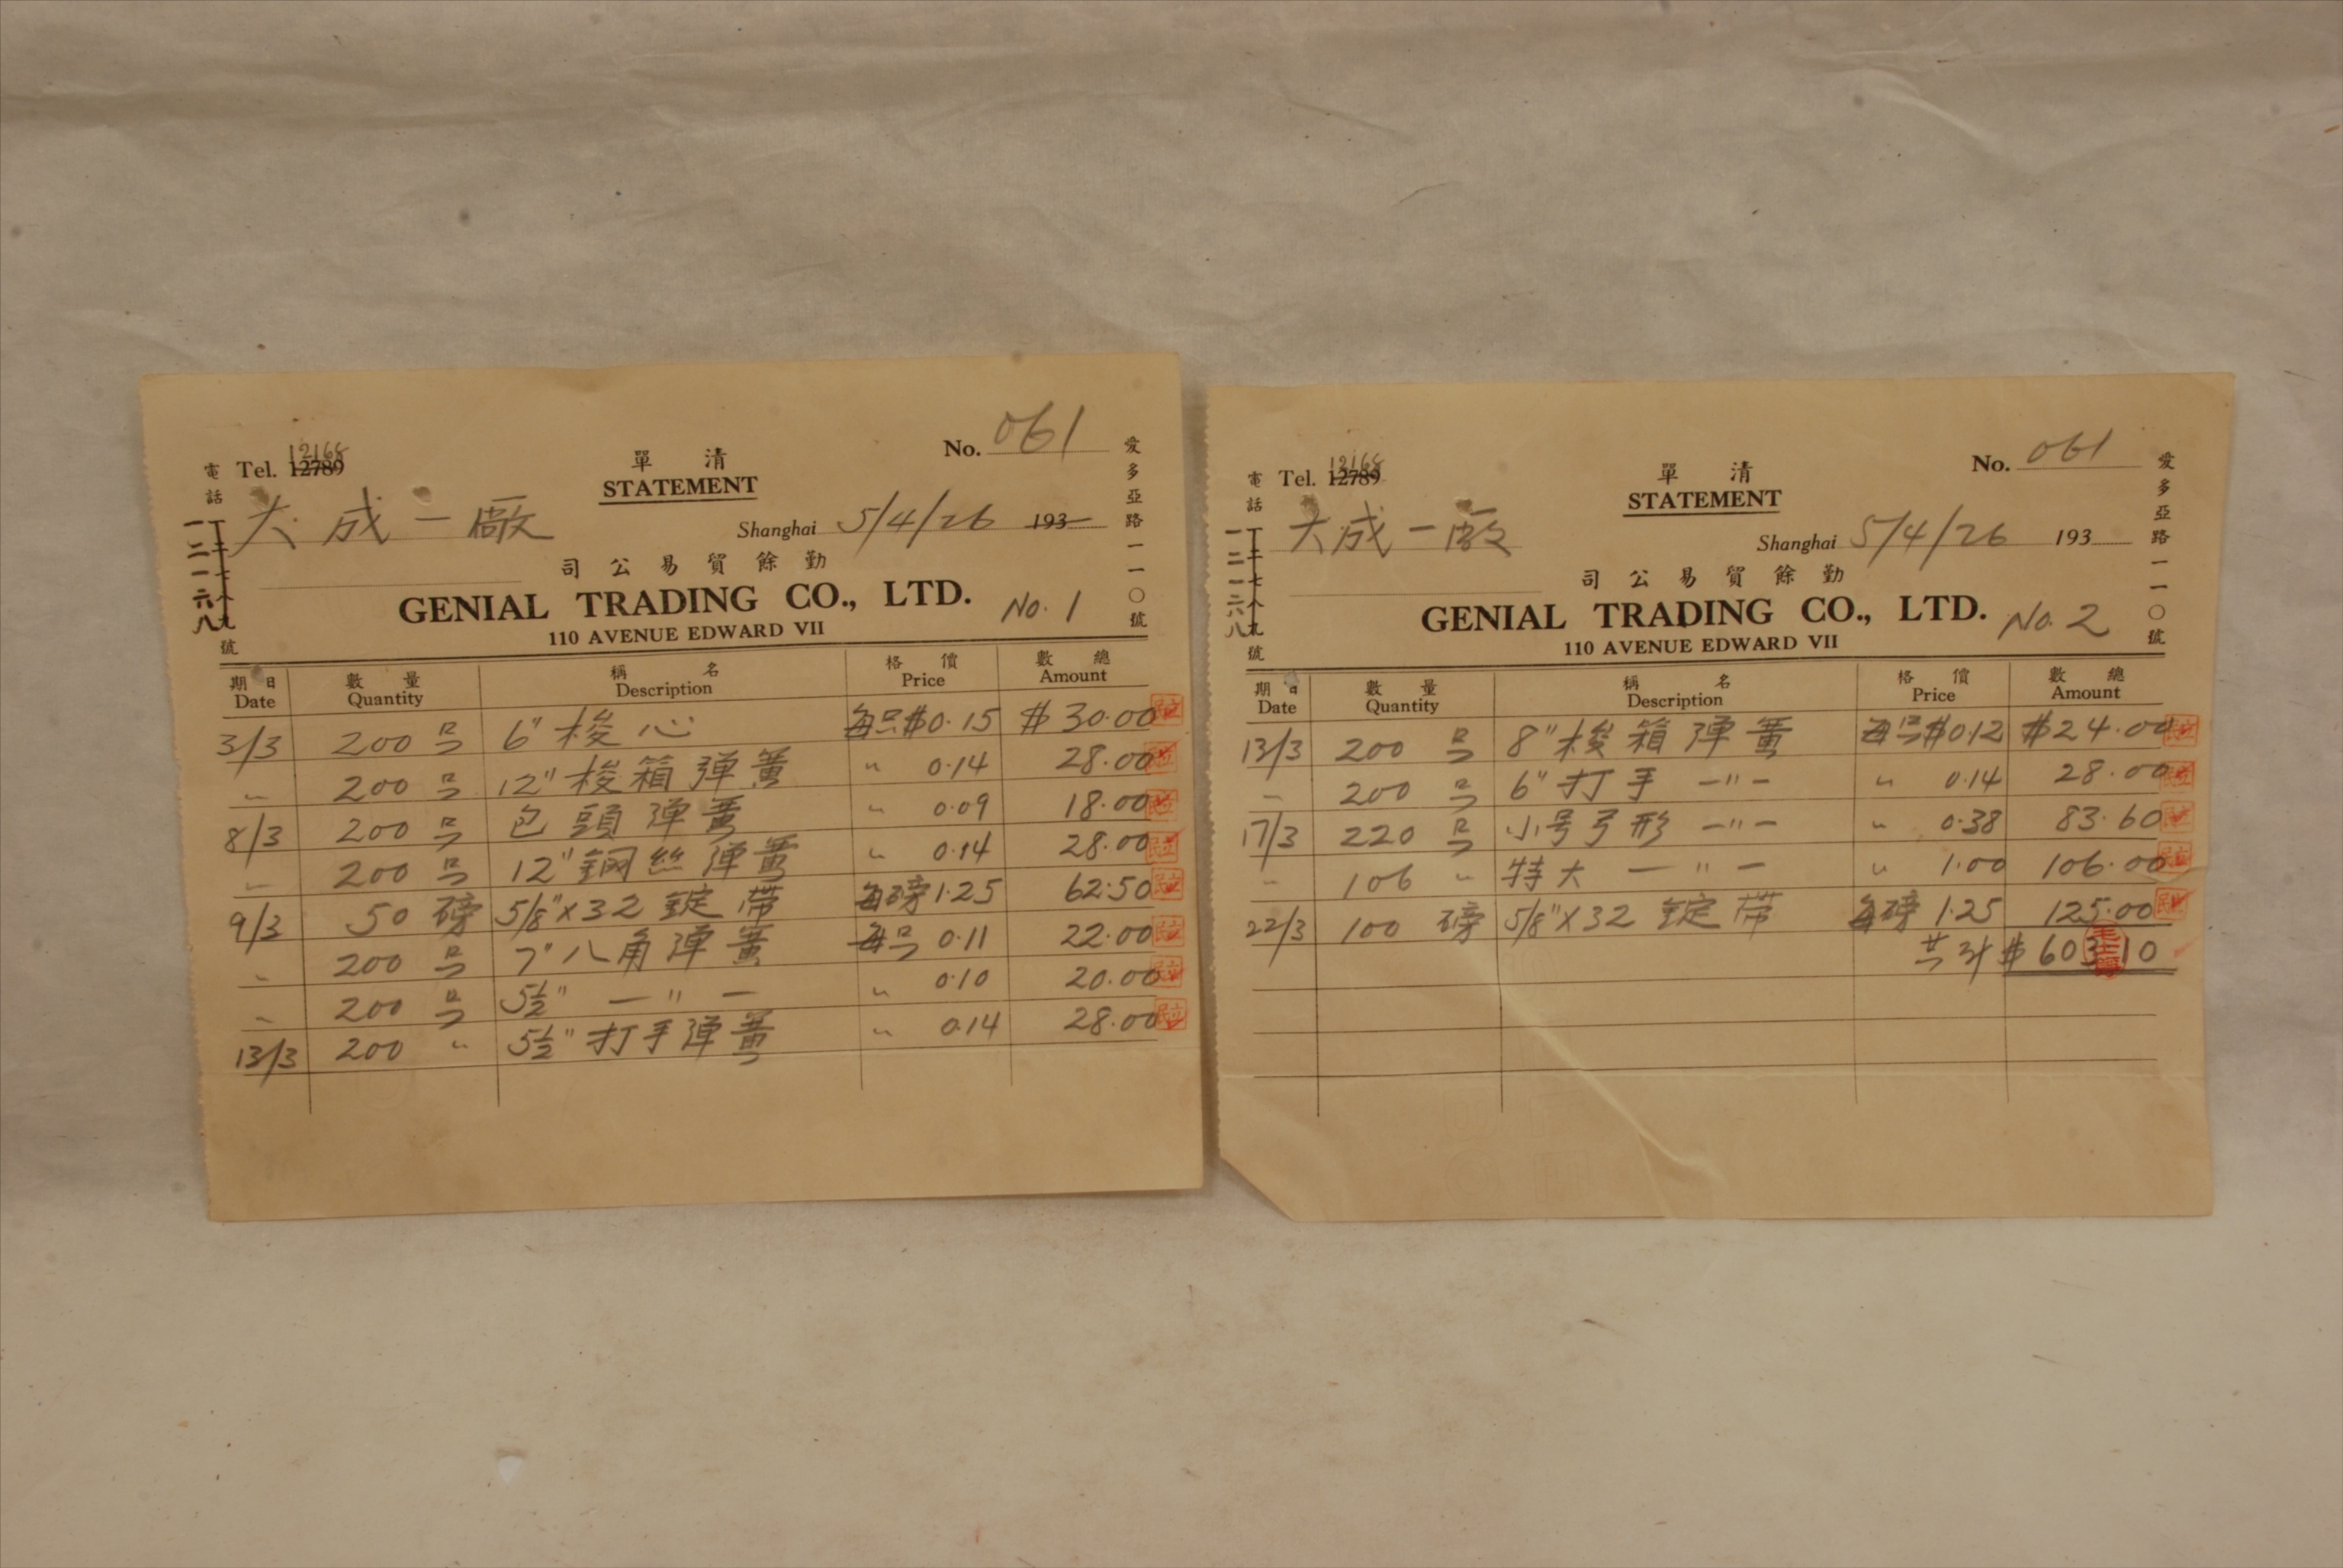 電話 一二一六八 號
Tel. 12789 12168
單 清
STATEMENT
No. 061
愛多亞路一一〇號
大成一廠
Shanghai 5/4/26 193
司公易貿餘勤
GENIAL TRADING CO., LTD. No. 1
110 AVENUE EDWARD VII
期日 數量 稱名 格價 數總
Date Quantity Description Price Amount
3/3 200 只 6" 梭心 每只$0.15 $30.00
〃 200 只 12" 梭箱弹簧 〃 0.14 28.00
8/3 200 只 包頭弹簧 〃 0.09 18.00
〃 200 只 12" 鋼丝弹簧 〃 0.14 28.00
9/3 50 磅 5/8"×32 錠带 每磅 1.25 62.50
〃 200 只 7" 八角弹簧 每只 0.11 22.00
〃 200 只 5½" —〃— 〃 0.10 20.00
13/3 200 〃 5½" 打手弹簧 〃 0.14 28.00
電話 一二七八九 一二一六八 號
Tel. 12789 12168
單 清
STATEMENT
No. 061
愛多亞路一一〇號
大成一廠
Shanghai 5/4/26 193
司公易貿餘勤
GENIAL TRADING CO., LTD. No. 2
110 AVENUE EDWARD VII
期日 數量 稱名 格價 數總
Date Quantity Description Price Amount
13/3 200 只 8" 梭箱弹簧 每只$0.12 $24.00
〃 200 只 6" 打手 —〃— 〃 0.14 28.00
17/3 220 只 小号弓形 —〃— 〃 0.38 83.60
〃 106 〃 特大 —〃— 〃 1.00 106.00
22/3 100 磅 5/8"×32 錠带 每磅 1.25 125.00
共计 $603.10